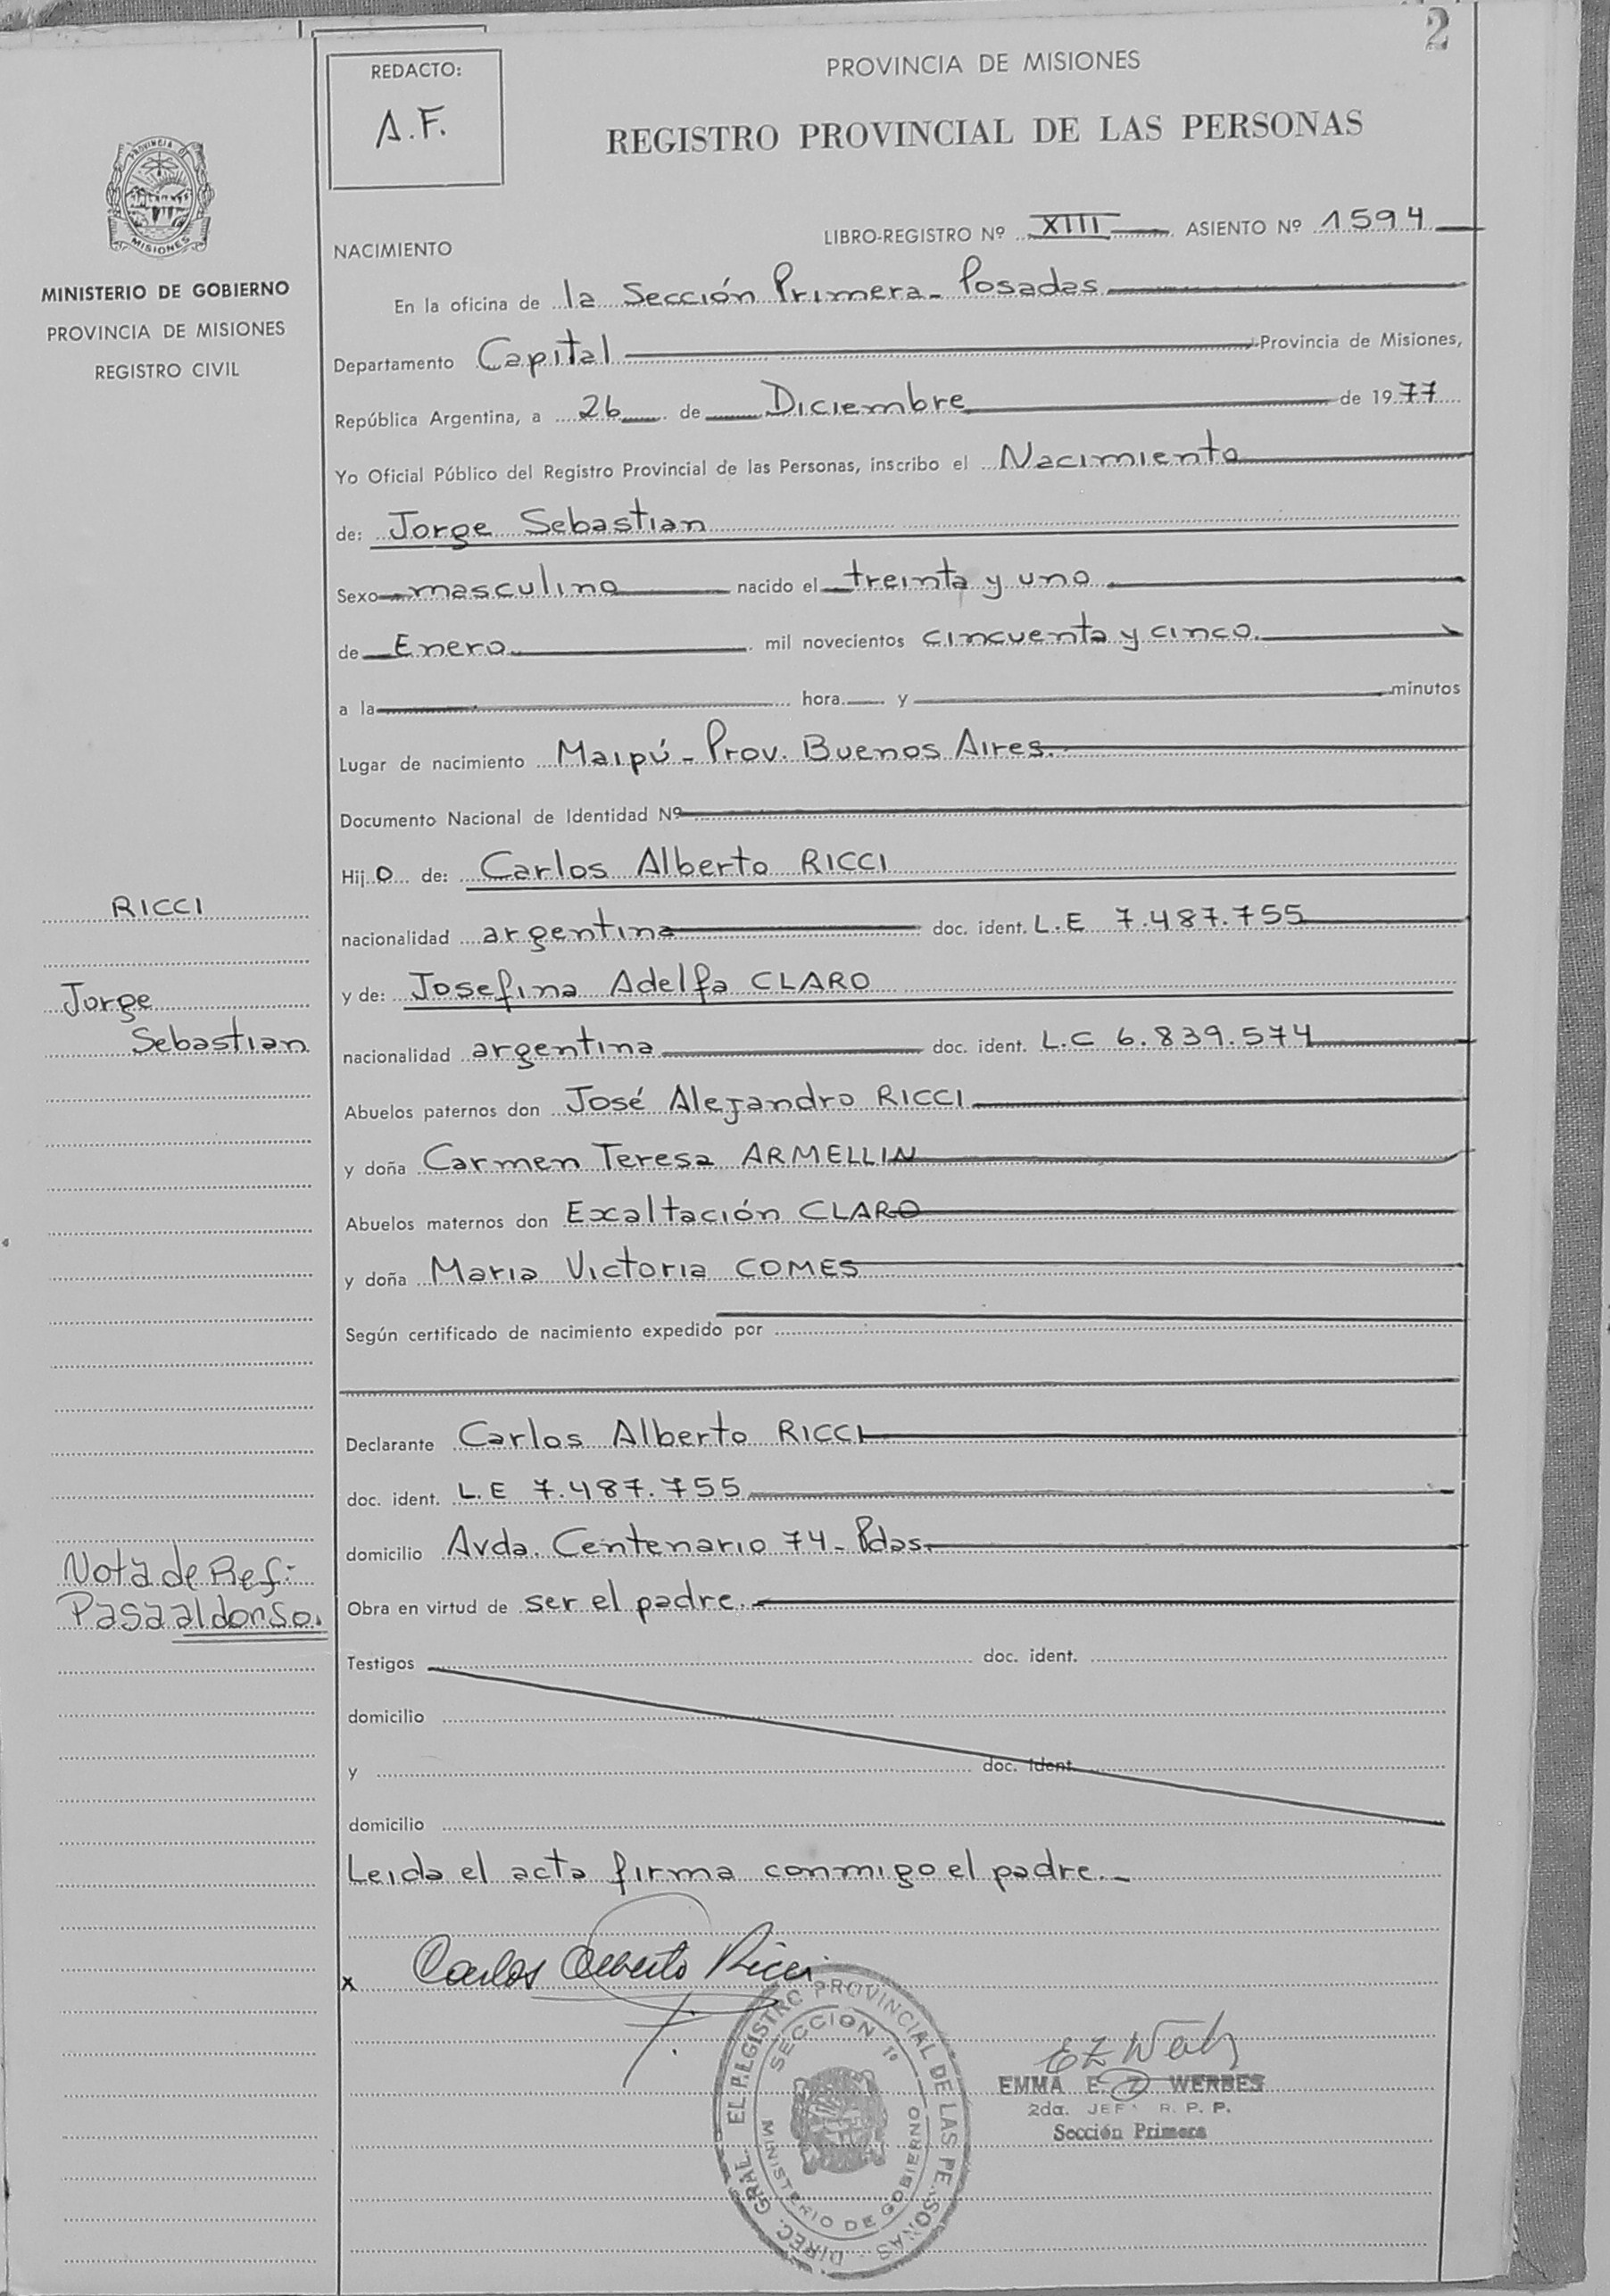 2
REDACTO:
A.F.
PROVINCIA DE MISIONES
REGISTRO PROVINCIAL DE LAS PERSONAS
PROVINCIA DE
MISIONES
MINISTERIO DE GOBIERNO
PROVINCIA DE MISIONES
REGISTRO CIVIL
LIBRO-REGISTRO Nº XIII ASIENTO Nº 1594
NACIMIENTO
En la oficina de la Sección Primera - Posadas
Departamento Capital Provincia de Misiones,
República Argentina, a 26 de Diciembre de 1977
Yo Oficial Público del Registro Provincial de las Personas, inscribo el Nacimiento
de: Jorge Sebastian
Sexo masculino nacido el treinta y uno
de Enero mil novecientos cincuenta y cinco.
a la hora y minutos
Lugar de nacimiento Maipú - Prov. Buenos Aires.
Documento Nacional de Identidad Nº
Hijo de: Carlos Alberto RICCI
RICCI
nacionalidad argentina doc. ident. L.E 7.487.755
Jorge
y de: Josefina Adelfa CLARO
Sebastian
nacionalidad argentina doc. ident. L.C 6.839.574
Abuelos paternos don José Alejandro RICCI
y doña Carmen Teresa ARMELLIN
Abuelos maternos don Exaltación CLARO
y doña Maria Victoria COMES
Según certificado de nacimiento expedido por
Declarante Carlos Alberto RICCI
doc. ident. L.E 7.487.755
domicilio Avda. Centenario 74 - Pdas.
Nota de Ref:
Pasa al dorso.
Obra en virtud de ser el padre.
Testigos doc. ident.
domicilio
y doc. ident.
domicilio
Leida el acta firma conmigo el padre.-
x Carlos Alberto Ricci
DIREC. GRAL. EL REGISTRO PROVINCIAL DE LAS PERSONAS
SECCION 1º
MINISTERIO DE GOBIERNO
EMMA E. Z. WERBES
2da. JEF R. P. P.
Sección Primera